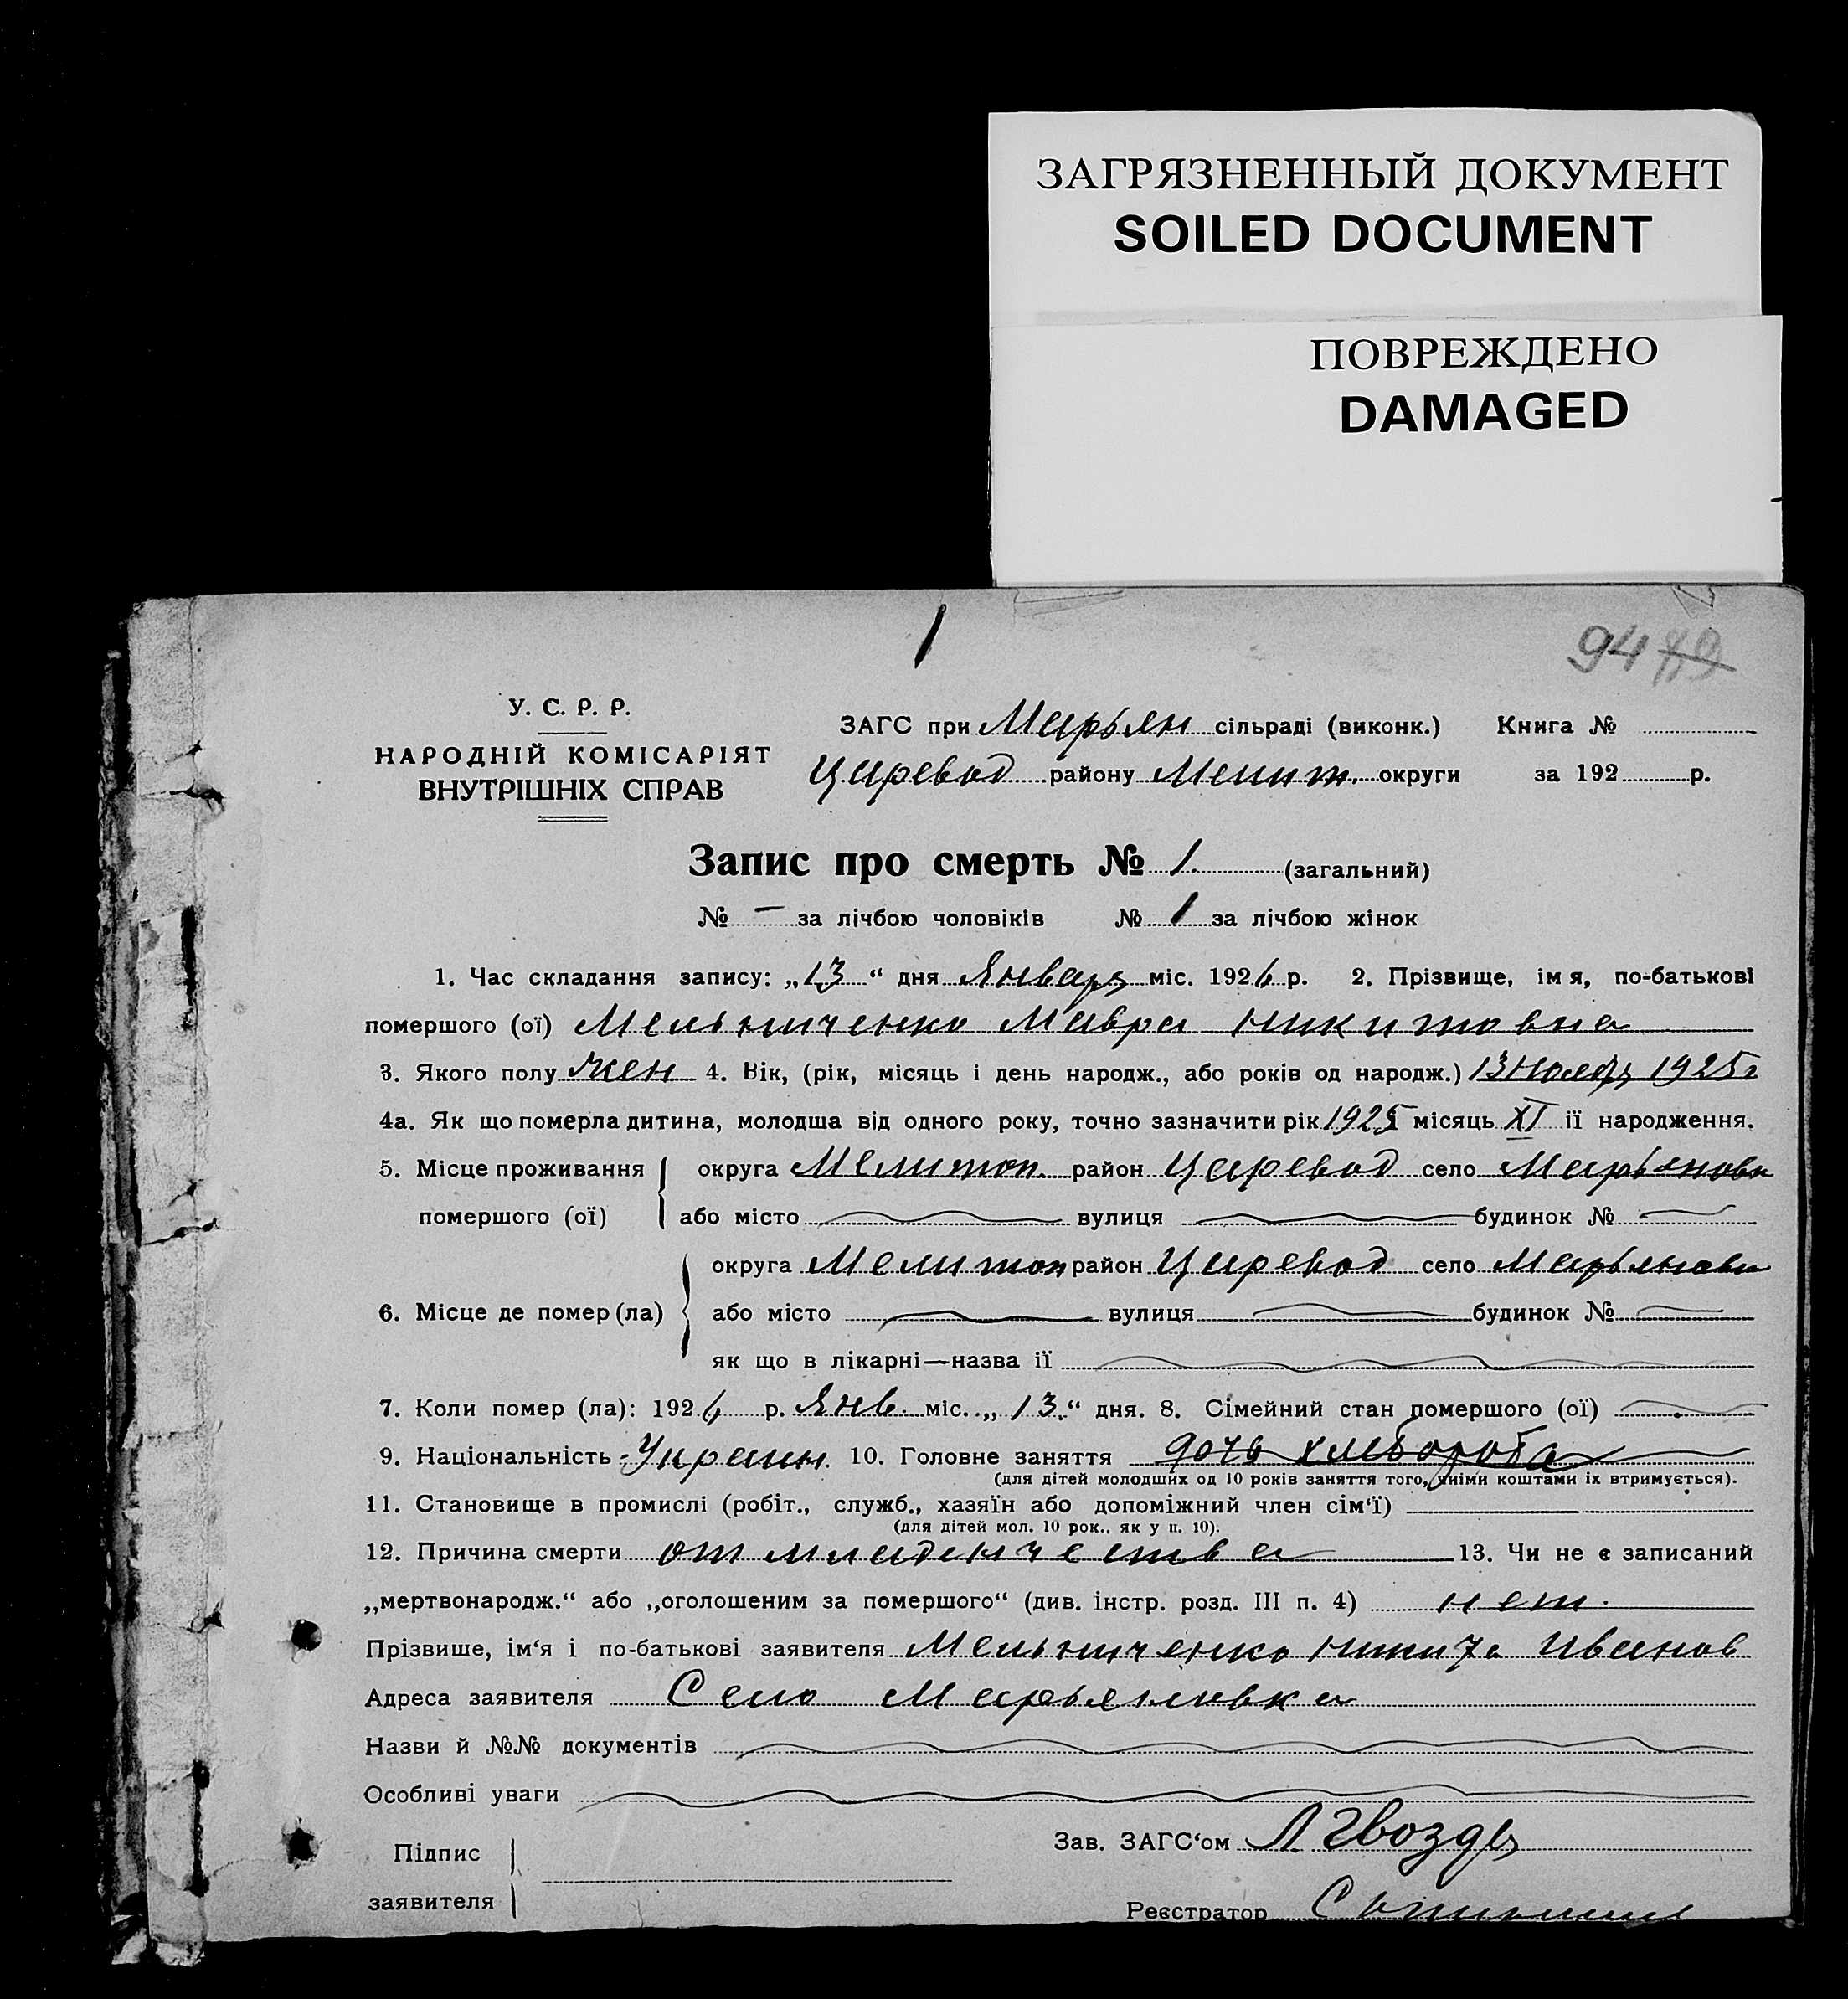 ЗАГРЯЗНЕННЫЙ ДОКУМЕНТ
SOILED DOCUMENT
ПОВРЕЖДЕНО
DAMAGED
1
94 89
У. С. Р. Р.
НАРОДНІЙ КОМІСАРІЯТ
ВНУТРІШНІХ СПРАВ
ЗАГС при Марьян сільраді (виконк.) Книга №
Царевод району Мелит. округи за 192 р.
Запис про смерть № 1. (загальний)
№ – за лічбою чоловіків № 1 за лічбою жінок
1. Час складання запису: „13“ дня Январь міс. 1926 р. 2. Прізвище, імя, по-батькові
померщого (ої) Мельниченко Мавра Никитовна
3. Якого полу жен 4. Вік, (рік, місяць і день народж., або років од народж.) 13 Ноябрь 1925 г
4а. Як що померла дитина, молодша від одного року, точно зазначити рік 1925 місяць XI її народження.
5. Місце проживання округа Мелитоп. район Царевод село Марьяновк
помершого (ої) або місто вулиця будинок №
округа Мелитоп район Царевод село Марьяновк
6. Місце де помер (ла) або місто вулиця будинок №
як що в лікарні—назва її
7. Коли помер (ла): 1926 р. Янв. міс. „13.“ дня. 8. Сімейний стан помершого (ої)
9. Національність Украин. 10. Головне заняття дочь хлебороба
(для дітей молодших од 10 років заняття того, чиїми коштами їх втримується).
11. Становище в промислі (робіт., служб., хазяїн або допоміжний член сім‘ї)
(для дітей мол. 10 рок., як у п. 10).
12. Причина смерти от младенчества 13. Чи не є записаний
„мертвонародж.“ або „оголошеним за помершого“ (див. інстр. розд. III п. 4) нет.
Прізвише, ім‘я і по-батькові заявителя Мельниченко Никита Иванов
Адреса заявителя Село Марьяновка
Назви й №№ документів
Особливі уваги
Зав. ЗАГС‘ом Л Гвоздь
Підпис
заявителя
Реєстратор